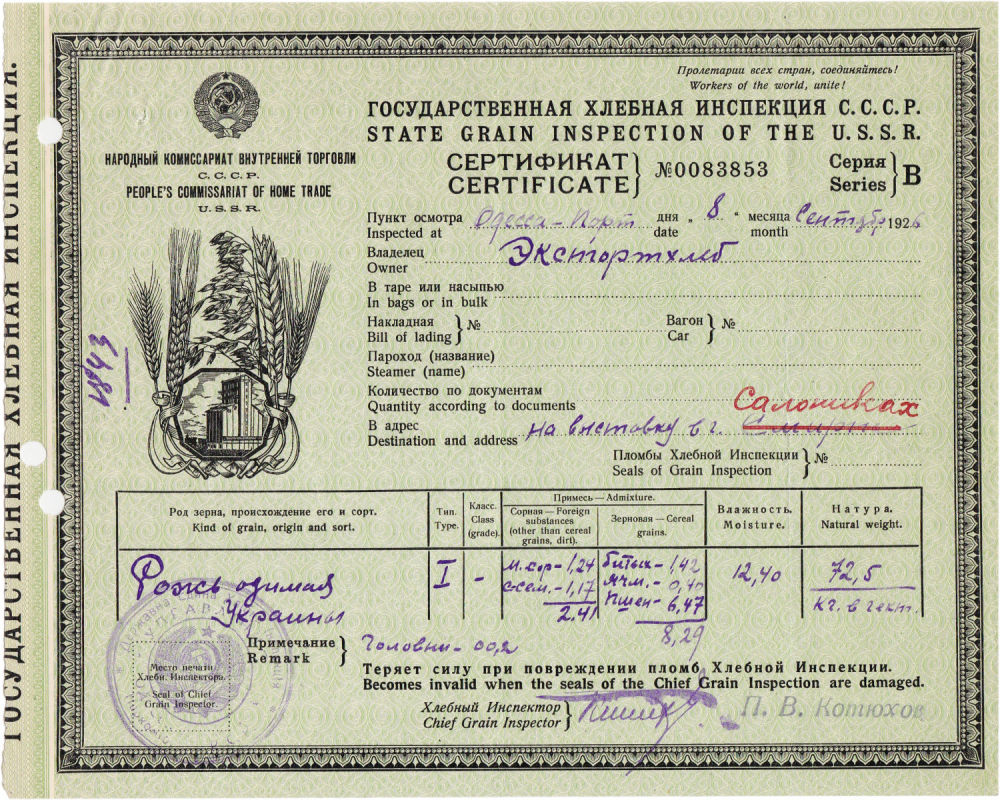 ГОСУДАРСТВЕННАЯ ХЛЕБНАЯ ИНСПЕКЦИЯ.
Пролетарии всех стран, соединяйтесь!
Workers of the world, unite!
ГОСУДАРСТВЕННАЯ ХЛЕБНАЯ ИНСПЕКЦИЯ С.С.С.Р.
STATE GRAIN INSPECTION OF THE U.S.S.R.
НАРОДНЫЙ КОМИССАРИАТ ВНУТРЕННЕЙ ТОРГОВЛИ
С.С.С.Р.
PEOPLE'S COMMISSARIAT OF HOME TRADE
U.S.S.R.
СЕРТИФИКАТ
CERTIFICATE
№0083853
Серия
Series
В
Пункт осмотра Одесса-Порт дня „ 8 “ месяца Сентябр 1926
Inspected at date month
Владелец Экспортхлеб
Owner
В таре или насыпью
In bags or in bulk
Накладная № Вагон №
Bill of lading Car
Пароход (название)
Steamer (name)
1843
Количество по документам
Quantity according to documents
Салониках
В адрес на выставку в г. Смирне
Destination and address
Пломбы Хлебной Инспекции №
Seals of Grain Inspection
Род зерна, происхождение его и сорт.
Kind of grain, origin and sort.
Тип.
Type.
Класс.
Class
(grade).
Примесь — Admixture.
Сорная — Foreign
substances
(other than cereal
grains, dirt).
Зерновая — Cereal
grains.
Влажность.
Moisture.
Натура.
Natural weight.
Рожь озимая I - м.сор- 1,24 битых- 1,42 12,40 72,5
Украины с.сем.- 1,17 ячм.- 0,40 кг. в гект.
2.41 пшен- 6,47
8,29
Примечание Головни- 00,2
Remark
Место печати
Хлебн. Инспектора.
Seal of Chief
Grain Inspector.
Теряет силу при повреждении пломб Хлебной Инспекции.
Becomes invalid when the seals of the Chief Grain Inspection are damaged.
Хлебный Инспектор
Chief Grain Inspector
П. В. Котюхов